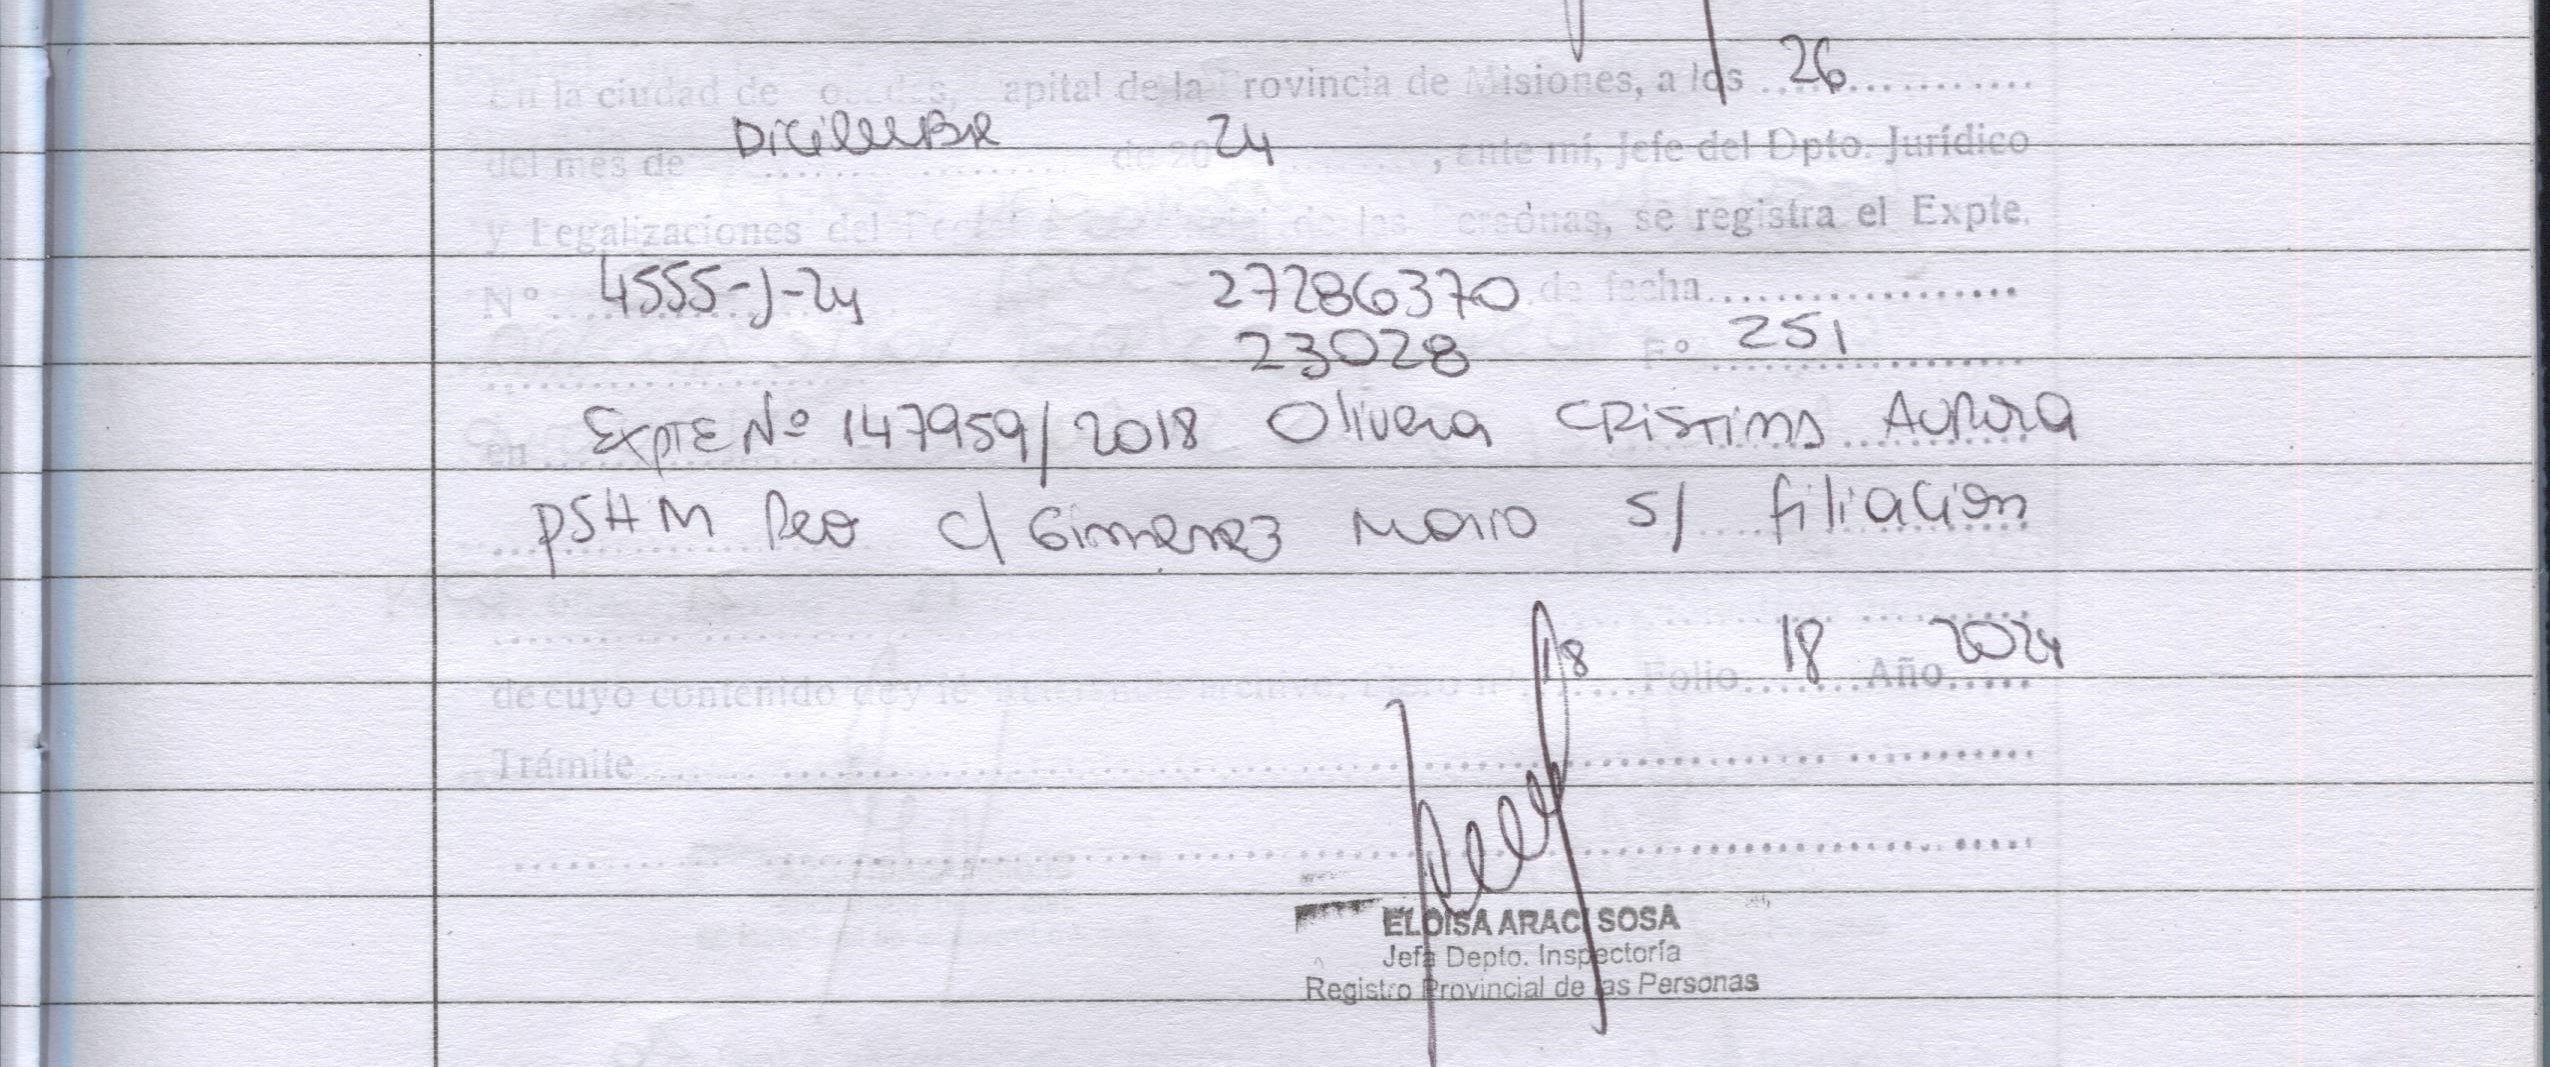 En la ciudad de capital de la Provincia de Misiones, a los 26
del mes de DiCieMBRe de 20 24, ante mí, Jefe del Dpto. Jurídico
y Legalizaciones del de las Personas, se registra el Expte.
Nº 4555-J-24 27286370 de fecha
23028 Fº 251
en EXPTE Nº 147959/2018 Olivera CRISTINA AURORA
PSHM c/ Gimenez MARIO S/ filiacion
de cuyo contenido doy fe 18 Folio 18 Año 2024
Trámite
ELOISA ARACI SOSA
Jefa Depto. Inspectoría
Registro Provincial de las Personas